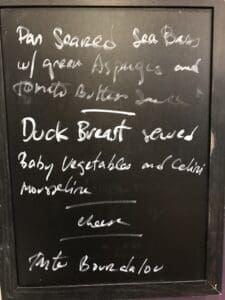 Pan Seared Sea Bass
w/ green Aspurges and
Tomato Butter Sauce
Duck Breast served
Baby Vegetables and Celiri
Mousseline
Cheese
Tarte Bourdalou